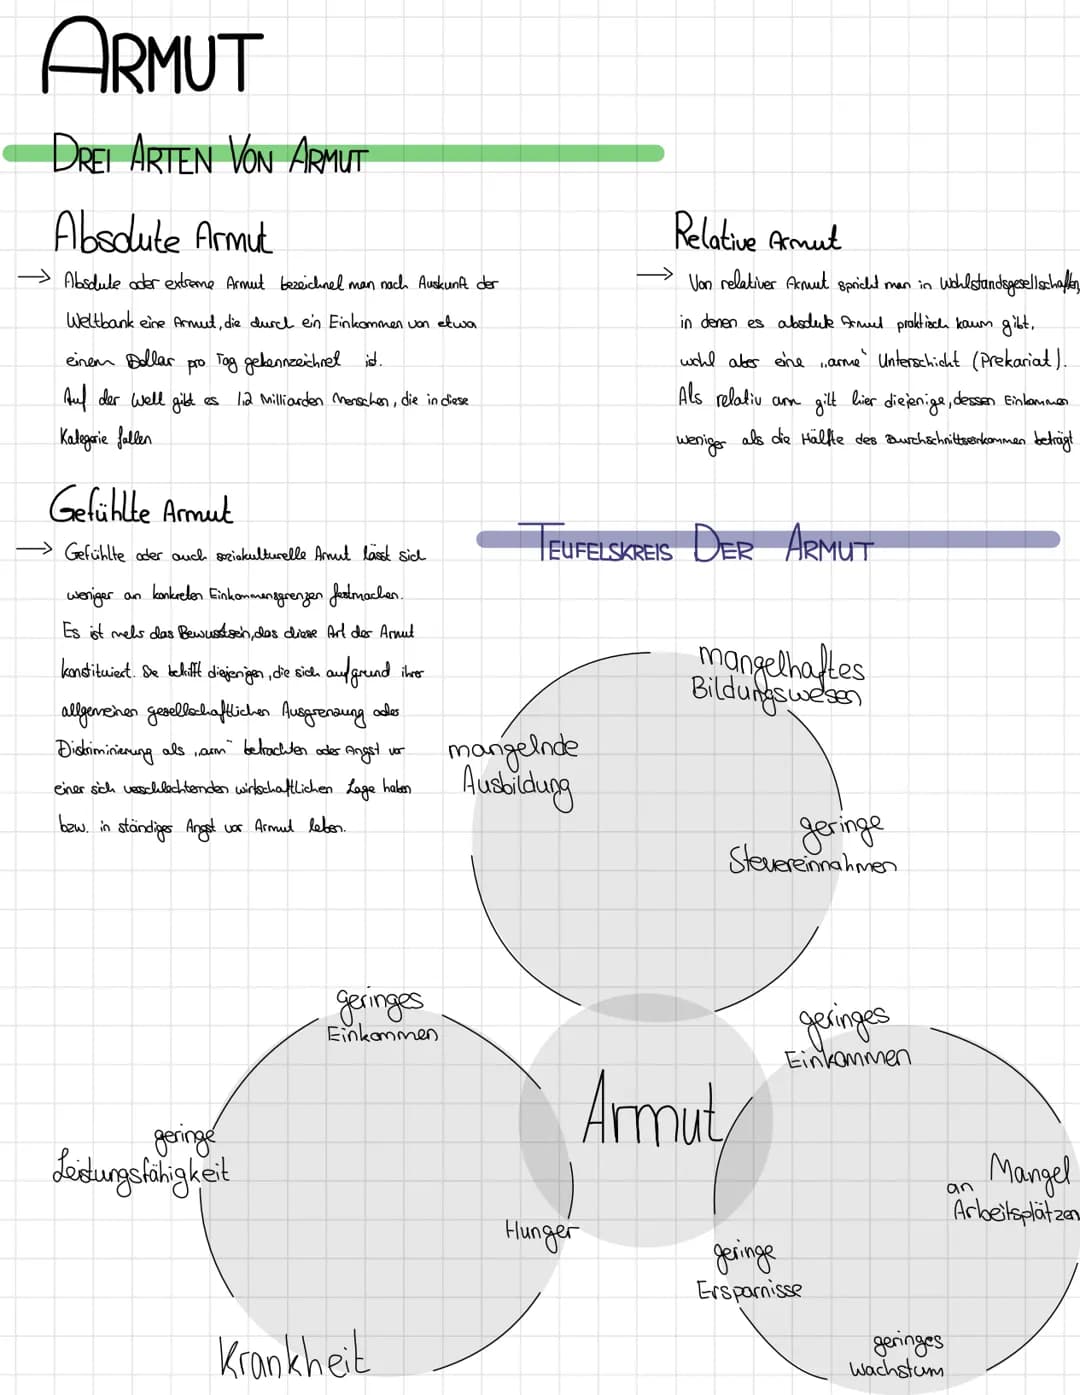 ARMUT
DREI ARTEN VON ARMUT
Absolute Armut
→ Absolute oder extreme Armut bezeichnet man nach Auskunft der
Weltbank eine Armut, die durch ein Einkommen von etwa
einem Dollar pro Tag gekennzeichnet ist.
Auf der Welt gibt es 1,2 Milliarden Menschen, die in diese
Kategorie fallen
Relative Armut
→ Von relativer Armut spricht man in Wohlstandsgesellschaften,
in denen es absolute Armut praktisch kaum gibt,
wohl aber eine „arme“ Unterschicht (Prekariat).
Als relativ arm gilt hier diejenige, dessen Einkommen
weniger als die Hälfte des Durchschnittseinkommen beträgt
Gefühlte Armut
→ Gefühlte oder auch soziokulturelle Armut lässt sich
weniger an konkreten Einkommensgrenzen festmachen.
Es ist mehr das Bewusstsein, das diese Art der Armut
konstituiert. Sie betrifft diejenigen, die sich aufgrund ihrer
allgemeinen gesellschaftlichen Ausgrenzung oder
Diskriminierung als „arm“ betrachten oder Angst vor
einer sich verschlechternden wirtschaftlichen Lage haben
bzw. in ständiger Angst vor Armut leben.
TEUFELSKREIS DER ARMUT
mangelhaftes
Bildungswesen
mangelnde
Ausbildung
geringe
Steuereinnahmen
geringes
Einkommen
geringes
Einkommen
Armut
geringe
Leistungsfähigkeit
Mangel
an
Arbeitsplätzen
Hunger
geringe
Ersparnisse
Krankheit
geringes
Wachstum